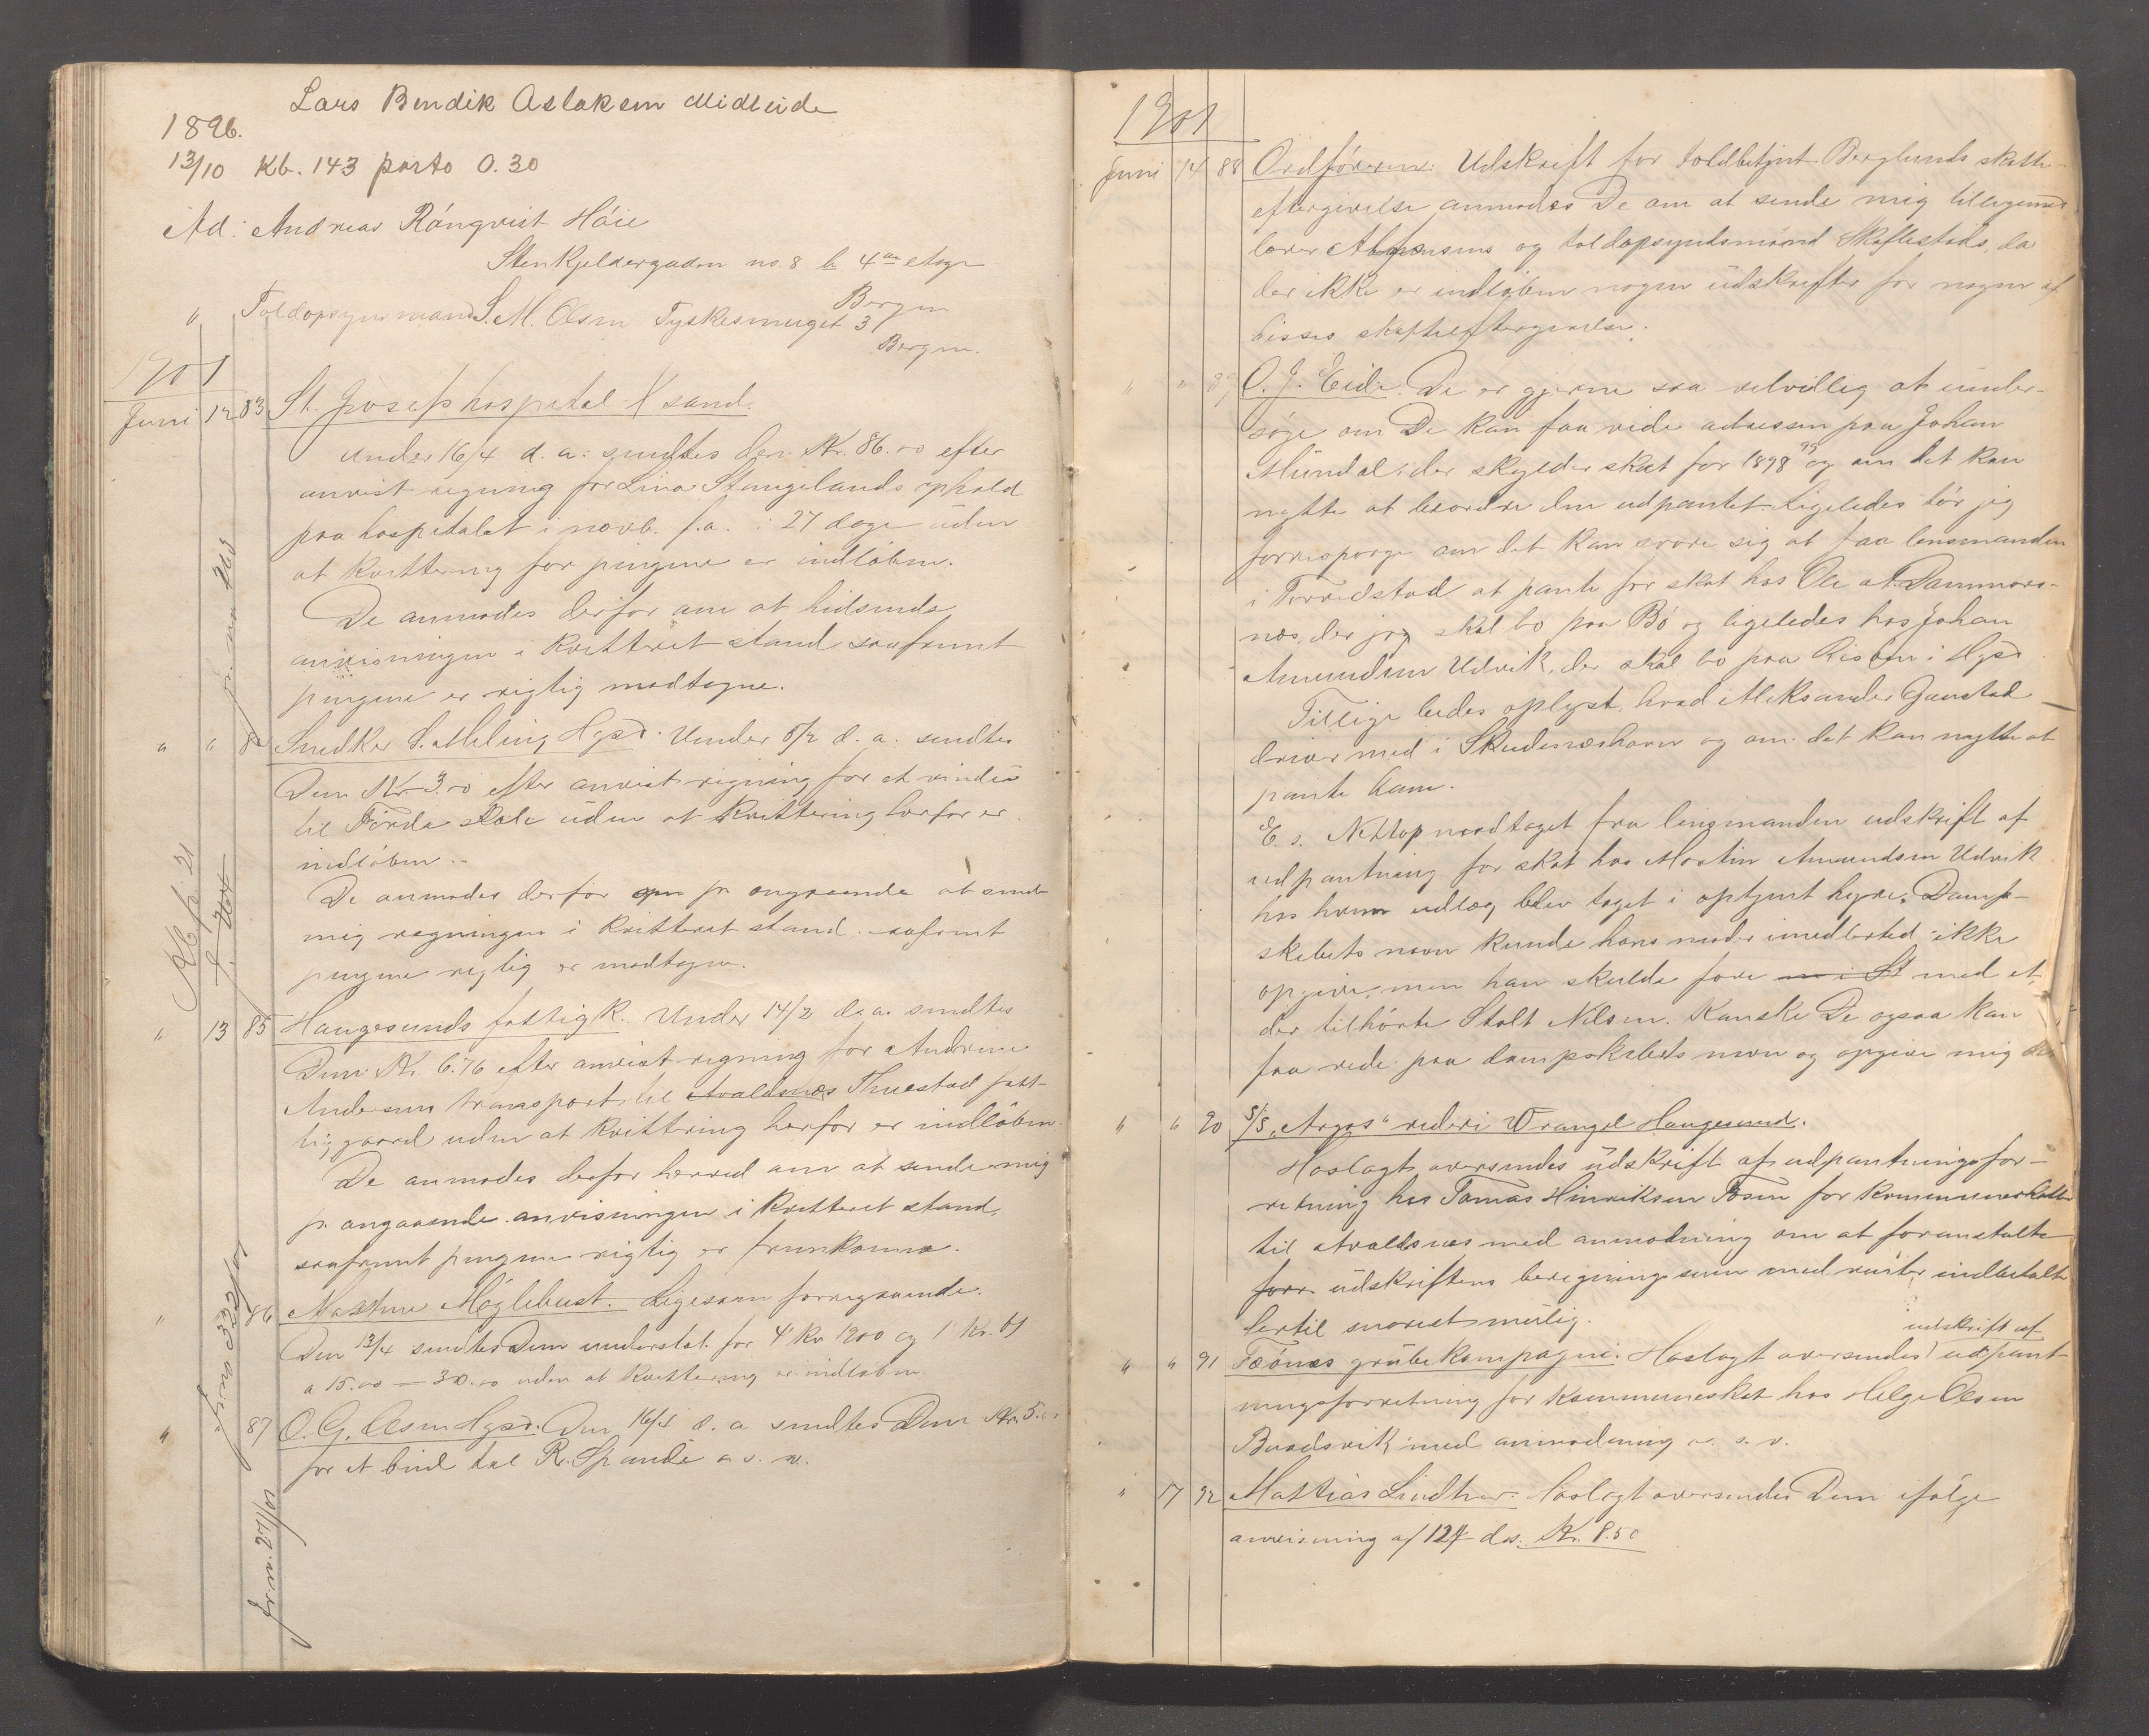 Lars Bendik Aslaksen Midleide
1896.
13/10 Kb. 143 porto 0.30
Ad: Andreas Rönqvist Höie
Stenkjeldergaden no. 8 b 4de etage
Bergen
" Toldopsynsmand S. M. Olsen Tyskesmuget 3
Bergen.
1901
Juni 12 83 St. Josefs hospital Xsand.
Under 16/4 d. a. sendtes Dem Kr. 86.00 efter
anvist regning for Lina Stangelands ophold
paa hospitalet i novb. f. a. i 27 dage uden
at kvittering for pengene er indløben.
De anmodes derfor om at hidsende
anvisningen i kvitteret stand saafremt
pengene er rigtig modtagne.
" " 84 Snedker S. Meling Hgsd. Under 5/2 d. a. sendtes
Dem Kr. 3.00 efter anvist regning for et vindu
til Förde skole uden at kvittering herfor er
indløben.
De anmodes derfor om pr omgaaende at sende
mig regningen i kvitteret stand saafremt
pengene rigtig er modtagne.
" 13 85 Haugesunds fattigk. Under 14/2 d. a. sendtes
Dem Kr. 6.76 efter anvist regning for Andrine
Andersens transport til Avaldsnæs Thuestad fatt-
tiggaard uden at kvittring herfor er indløben.
De anmodes derfor herved om at sende mig
pr omgaaende anvisningen i kvitteret stand,
saafremt pengene rigtig er fremkomne.
" 86 Mathne Møglebust. Ligesom foregaaende.
Den 13/4 sendtes Dem understøt. for 4' kv 1900 og 1' kv. 01
a 15.00 — 30.00 uden at kvittering er indløben
" 87 O. G. Olsen Hgsd. Den 16/4 d. a sendtes Dem Kr. 5.00
for et bind til R. Spande o. s. v.
Kb p. 21
frem 27/01
1901
Juni 14 88 Ordføreren: Udskrift for toldbetjent Berglunds skatte-
eftergivelse anmodes De om at sende mig tilligemed
lærer Alfonsens og toldopsynsmand Skeflestads, da
der ikke er indløben nogen udskrifter for nogen af
disses skatteeftergivelse.
" " 89 O. J. Eide. De er gjerne saa velvillig at under-
søge om De kan faa vide adressen paa Johan
Mundal der skylder skat for 1898 99 og om det kan
nytte at beordre den udpantet. Ligeledes bör jeg
forrespørge om det kan svare sig at faa lensmanden
i Torvedstad at pante for skat hos Ole A. Dammens-
nes, der jeg skal bo paa Bø og ligeledes hos Johan
Amundsen Udvik, der skal bo paa Risøen i Hgsd
Tillige bedes oplyst, hvad Aleksander Gunstad
driver med i Skudesneshavn og om det kan nytte at
pante ham.
E. s. Nettop modtaget fra lensmanden udskrift af
udpantning for skat hos Martin Amundsen Udvik
hos hvem udlæg blev taget i optjent hyre. Damp-
skibets navn kunde hans moder imidlertid ikke
opgive, men han skulde fare med et
der tilhörte Stolt Nilsen. Kanske De ogsaa kan
faa rede paa dampskibets navn og opgive mig det
" " 90 S/S „Argos" rederi Wrangel Haugesund.
Hoslagt oversendes udskrift af udpantningsfor-
retning hos Tomas Hinriksen Fosen for kommuneskatter
til Avaldsnes med anmodning om at foranstalte
forr udskriftens beregningssum med renter indbetalt
hertil snarest mulig.
udskrift af
" " 91 Feönes grubekompagni. Hoslagt oversendes udpant-
ningsforretning for kommuneskat hos Helge Olsen
Buadsvik med anmodning o. s. v.
" 17 92 Mattias Lindtner. Hoslagt oversendes Dem ifølge
anvisning af 12/4 ds. Kr. 8.50